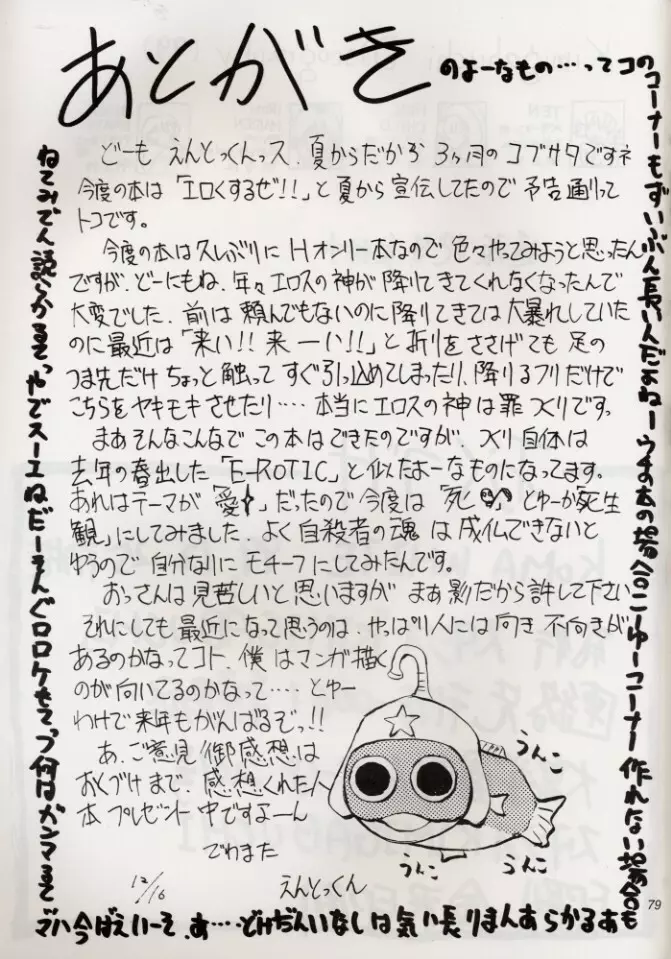 あとがき
のよーなもの…ってコの
コーナーもずいぶん長いんだよねーウチの本の場合こーゆーコーナー作れない場合も
あるからあんまり長い気はしないんだけど…あ、そーいえば今ハマ
ってるマンガは何
ど一も えんとっくんっス、夏からだから 3ヶ月のゴブサタですネ
今度の本は「エロくするぜ!!」と夏から宣伝してたので予告通りって
トコです。
今度の本は久しぶりに Hオンリー本なので色々やってみようと思ったん
ですが、どーにもね、年々エロスの神が降りてきてくれなくなったんで
大変でした、前は頼んでもないのに降りてきては大暴れしていた
のに最近は「来い!!来ーい!!」と祈りをささげても足の
つま先だけちょっと触ってすぐ引っ込めてしまったり、降りるフリだけで
こちらをヤキモキさせたり‥‥本当にエロスの神は罪つくりです。
まあそんなこんなでこの本はできたのですが、つくり自体は
去年の春出した「E-ROTIC」と似たよーなものになってます。
あれはテーマが「愛」だったので今度は「死」とゆーか「死生
観」にしてみました、よく自殺者の魂は成仏できないと
ゆうので自分なりにモチーフにしてみたんです。
おっさんは見苦しいと思いますがまあ影だから許して下さい
それにしても最近になって思うのは、やっぱり人には向き不向きが
あるのかなってコト、僕はマンガ描く
のが向いてるのかなって‥‥とゆー
わけで来年もがんばるぞっ!!
あ、ご意見/御感想は
おくづけまで、感想くれた人
本プレゼント中ですよーん
でわまた
12/16 えんとっくん
うんこ
うんこ
うんこ
79